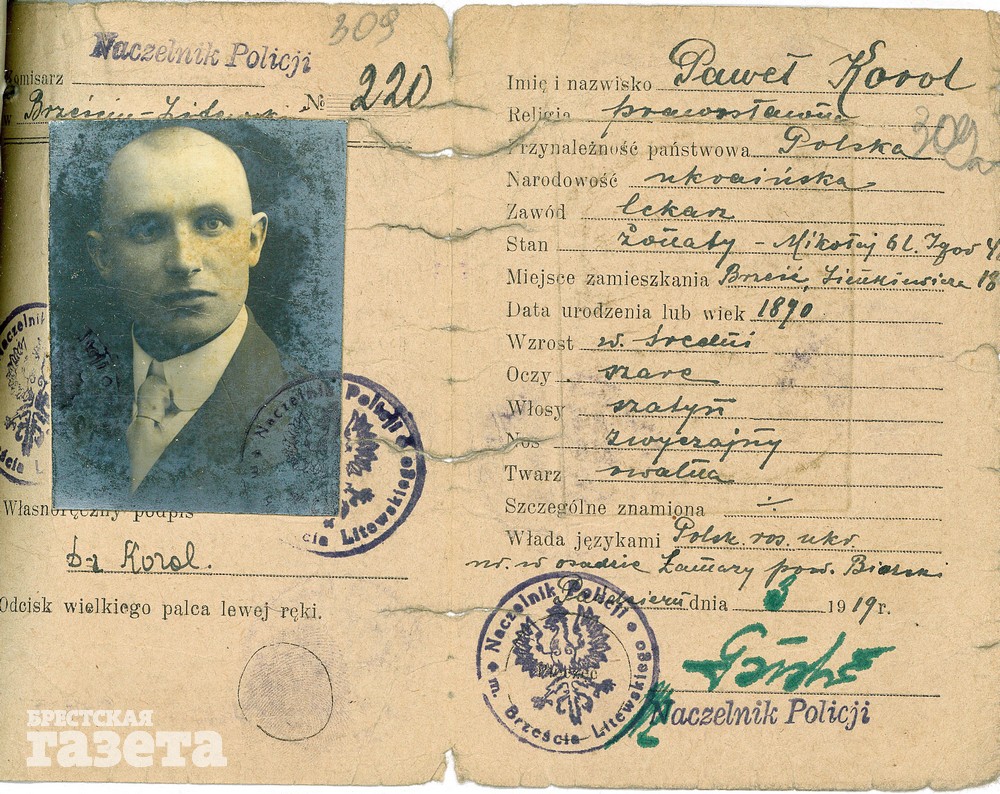 309
Naczelnik Policji
Komisarz
w Brześciu-Litewsk. № 220
Własnoręczny podpis
Korol.
Odcisk wielkiego palca lewej ręki.
Imię i nazwisko Paweł Korol
Religia prawosławna
309
Przynależność państwowa Polska
Narodowość ukraińska
Zawód lekarz
Stan żonaty - Mikołaj 6 l. Igor
Miejsce zamieszkania Brześć, Sienkiewicza 18
Data urodzenia lub wiek 1890
Wzrost w. średni
Oczy szare
Włosy szatyn
Nos zwyczajny
Twarz owalna
Szczególne znamiona ÷
Włada językami Polsk. ros. ukr.
ur. w osadzie Łamazy pow. Bialski
dnia 3 1919 r.
Naczelnik Policji
Naczelnik Policji
m. Brześcia Litewskiego
Naczelnik Policji
m. Brześcia-Litewskiego
БРЕСТСКАЯ
газета